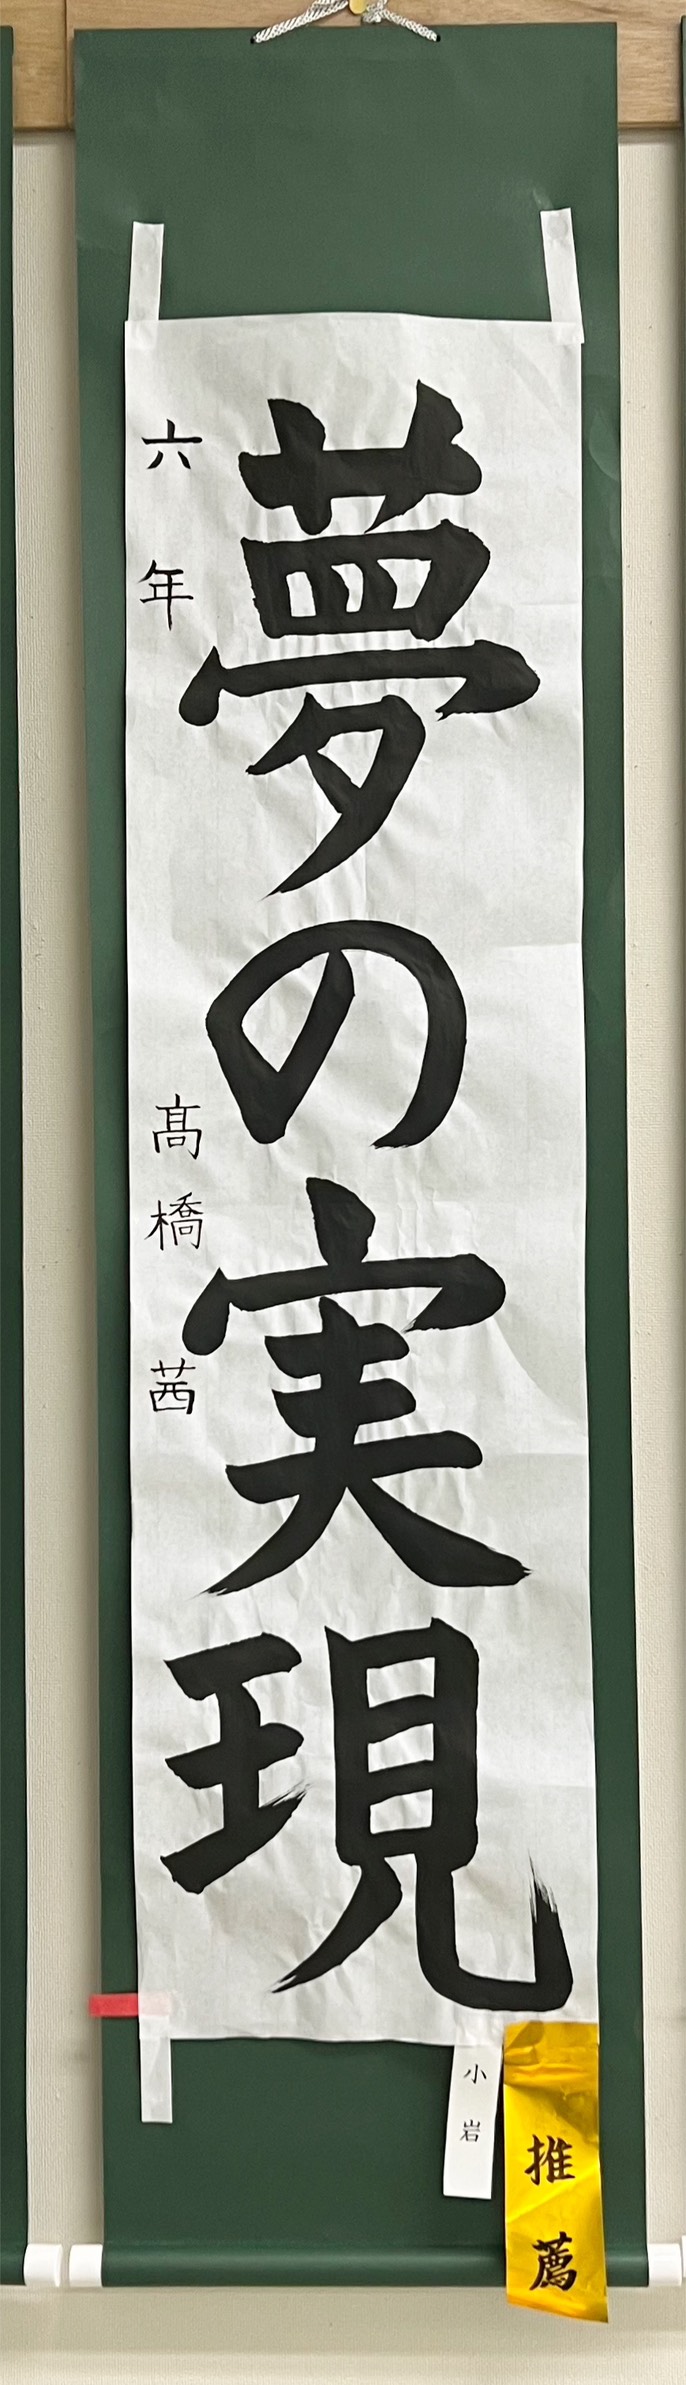 夢の実現
六年 髙橋 茜
小岩
推薦